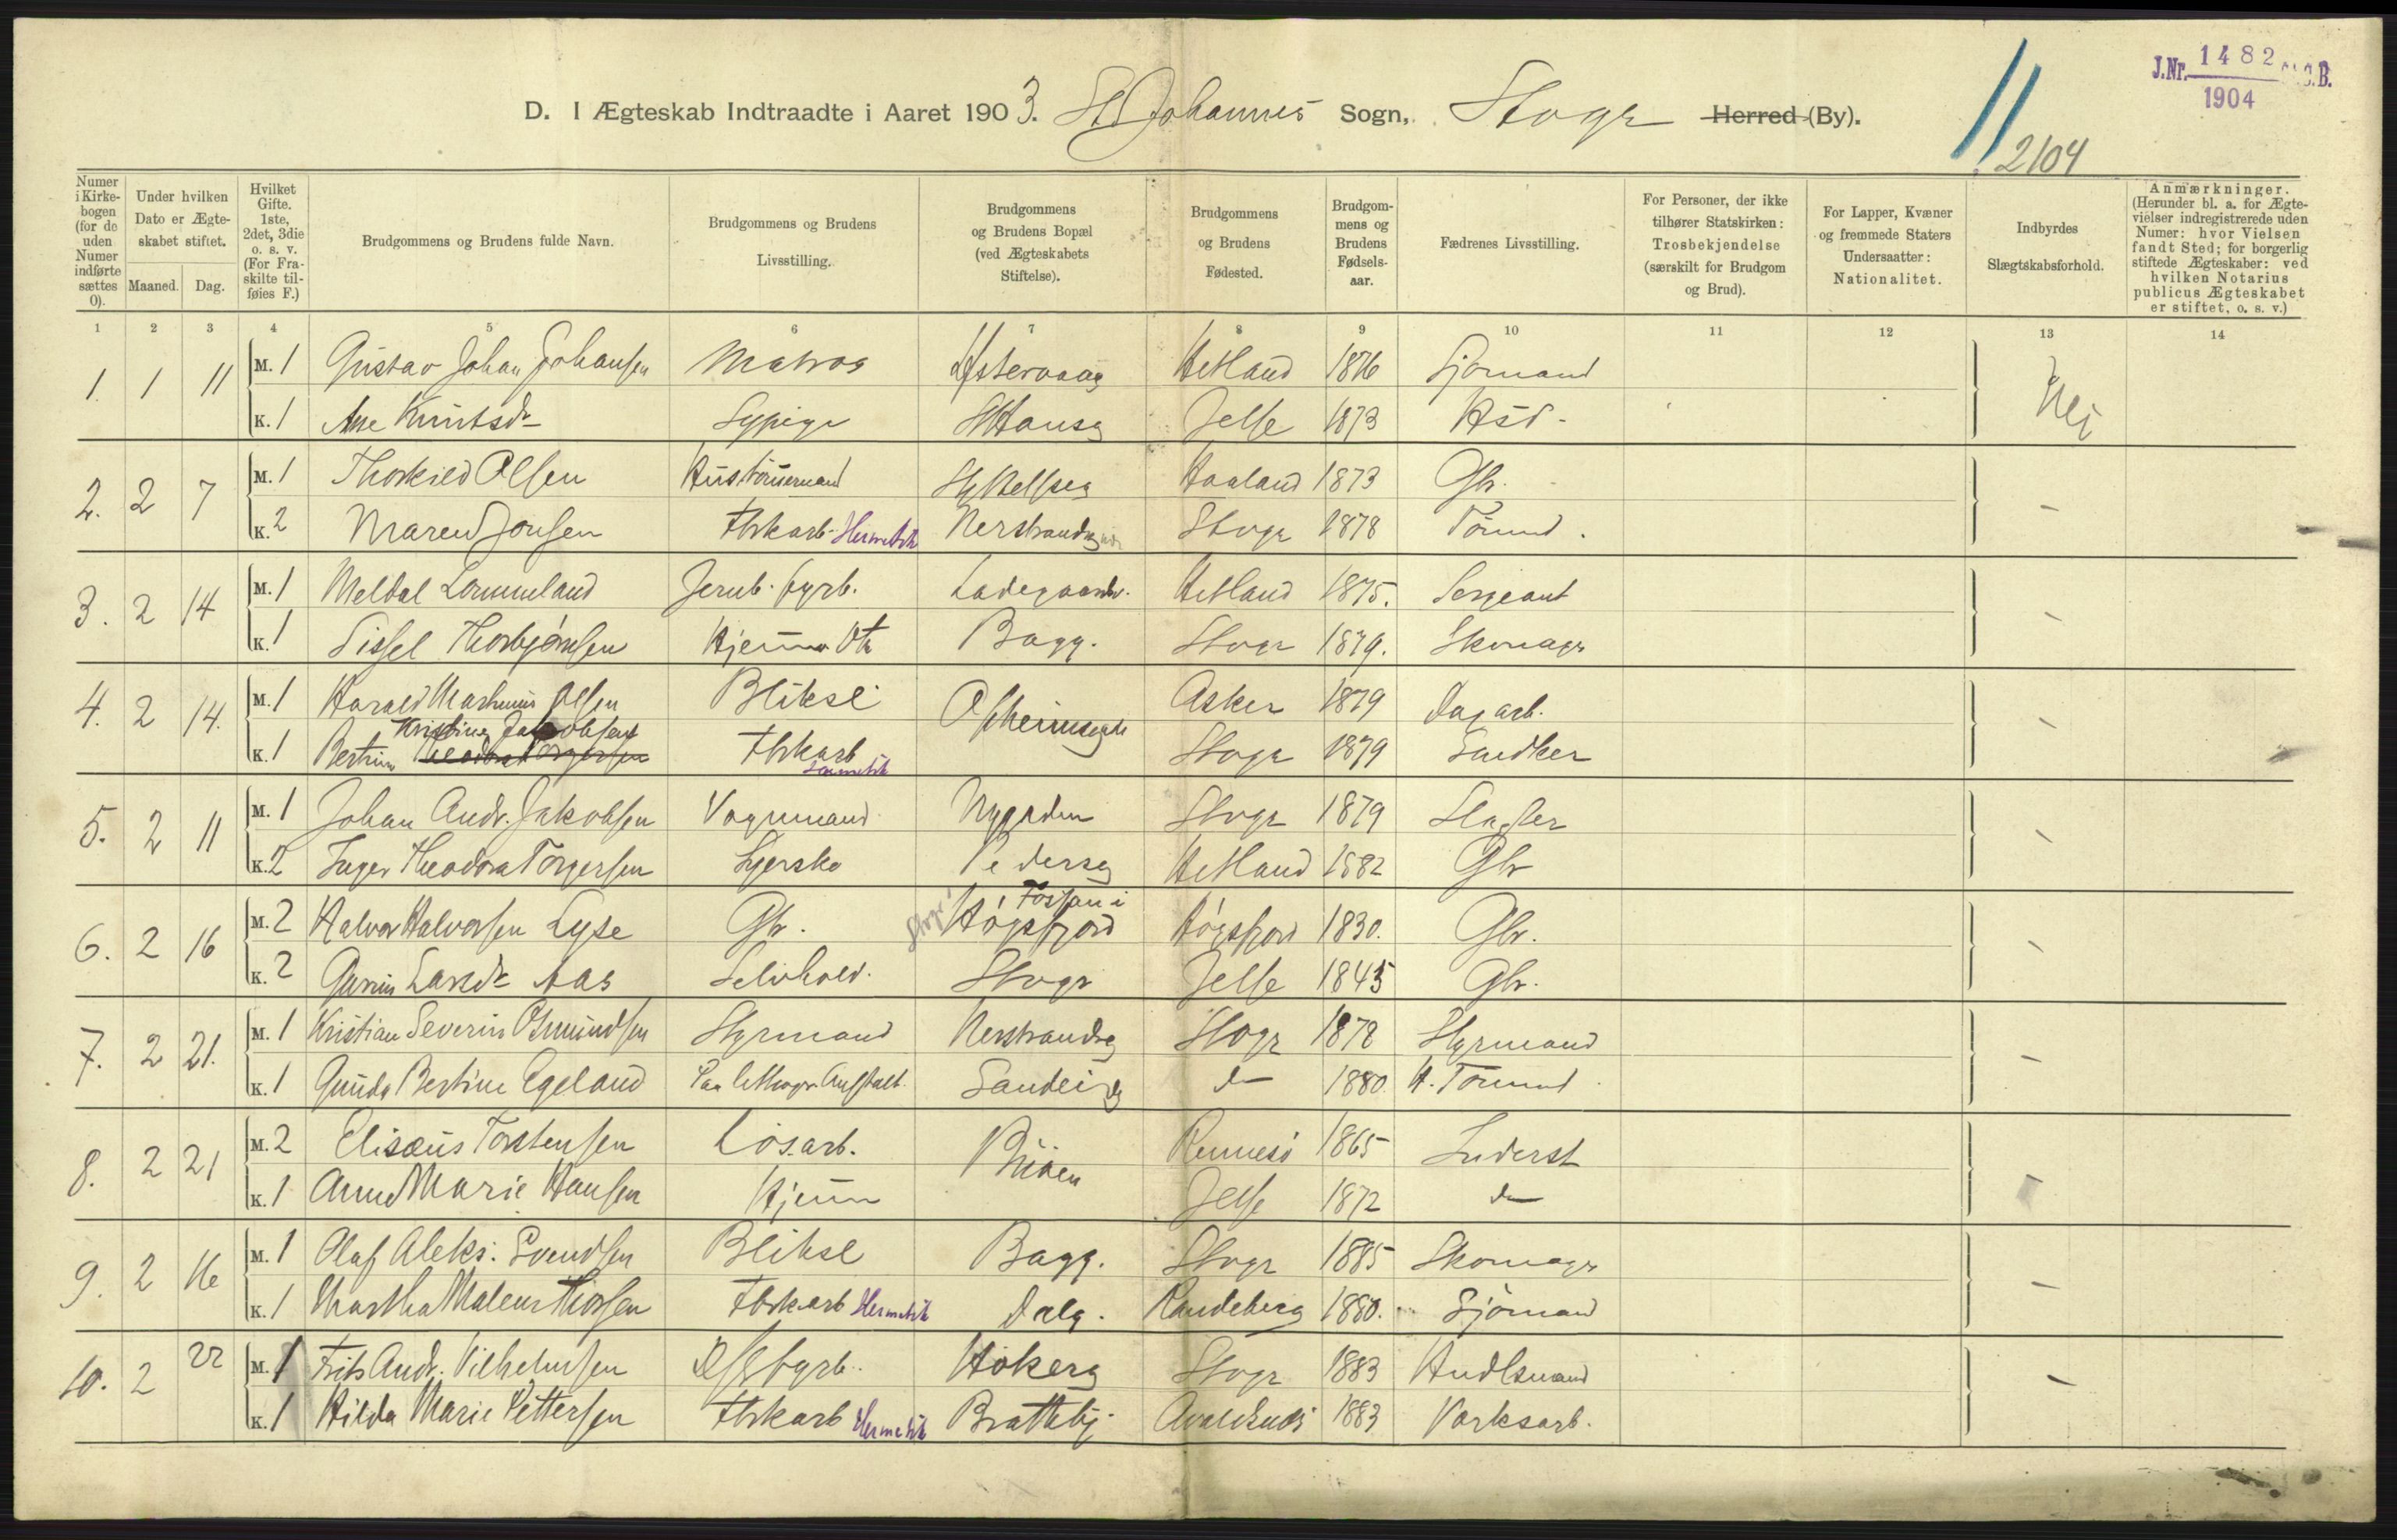 J.Nr. 1482 C.B.
1904
D. I Ægteskab Indtraadte i Aaret 1903. St Johannes Sogn, Stvgr Herred (By).
11
2104
Numer i Kirkebogen (for de uden Numer indførte sættes 0).
Under hvilken Dato er Ægteskabet stiftet.
Maaned. Dag.
Hvilket Gifte. 1ste, 2det, 3die o. s. v. (For Fraskilte tilføies F.)
Brudgommens og Brudens fulde Navn.
Brudgommens og Brudens Livsstilling.
Brudgommens og Brudens Bopæl (ved Ægteskabets Stiftelse).
Brudgommens og Brudens Fødested.
Brudgommens og Brudens Fødselsaar.
Fædrenes Livsstilling.
For Personer, der ikke tilhører Statskirken: Trosbekjendelse (særskilt for Brudgom og Brud).
For Lapper, Kvæner og fremmede Staters Undersaatter: Nationalitet.
Indbyrdes Slægtskabsforhold.
Anmærkninger. (Herunder bl. a. for Ægtevielser indregistrerede uden Numer: hvor Vielsen fandt Sted; for borgerlig stiftede Ægteskaber: ved hvilken Notarius publicus Ægteskabet er stiftet, o. s. v.)
1 2 3 4 5 6 7 8 9 10 11 12 13 14
1. 1 11 M. 1 Gustav Johan Johansen Matros Østervaag Hetland 1876 Sjømand Nei
K. 1 Ane Knutsdr Sypige St Hansg Jelse 1873 Hsd.
2. 2 7 M. 1 Thorkild Olsen Hustømmermand Haaland 1873 Gbr. -
K. 2 Maren Jonsen Fbrkarb. Hermetik Nerstrandsg Stvgr 1878 Tømmd.
3. 2 14 M. 1 Meldal Lommeland Jernb. fyrb. Ladegaardsv. Hetland 1875. Sergeant -
K. 1 Sissel Thorbjørnsen Hjemme Bagg. Stvgr 1879. Skomagr
4. 2 14. M. 1 Harald Martinius Olsen Bliksl Asker 1879 Dagarb. -
Kristine Jakobsen
K. 1 Bertine Theodora Torgersen Fbrkarb Hermetik Stvgr 1879 Snedker
5. 2 11 M. 1 Johan Andr. Jakobsen Vognmand Nygaden Stvgr 1879 Slagter -
K. 2 Inger Theodora Torgersen Syerske Pedersg Hetland 1882 Gbr
6. 2 16 M. 2 Halvor Halvorsen Lyse Gbr. Fossan i Høgsfjord Høgsfjord 1830. Gbr. -
K. 2 Larsdr Aas Selvhold. Stvgr Jelse 1845 Gbr.
7. 2 21. M. 1 Kristian Severin Osmundsen Styrmand Nerstrandsg Stvgr 1878 Styrmand -
K. 1 Gunda Bertine Egeland Paa Lithogr. Anstalt. Sandeidg do 1880 H. Tømmd.
8. 2 21 M. 2 Elisæus Torstensen Løsarb. Rennesø 1865 Inderst -
K. 1 Anne Marie Hansen Hjemme Jelse 1872 do
9. 2 16 M. 1 Olaf Aleks. Svendsen Bliksl Bagg. Stvgr 1885 Skomagr -
K. 1 Martha Malene Thorsen Fbrkarb Hermetik Dalg. Randeberg 1880. Sjømand
10. 2 22 M. 1 Frits Andr. Vilhelmsen fyrb. Høkerg Stvgr 1883 Handlsmand -
K. 1 Hilda Marie Pettersen Fbrkarb Hermetik Brattebj. Avaldsnes 1883 Værksarb.